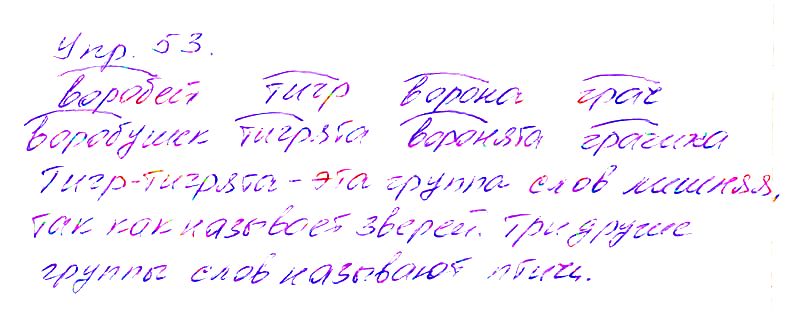 Упр. 53.
воробей тигр ворона грач
воробушек тигрята воронята грачиха
Тигр-тигрята - эта группа слов лишняя,
так как называет зверей. Три другие
группы слов называют птиц.